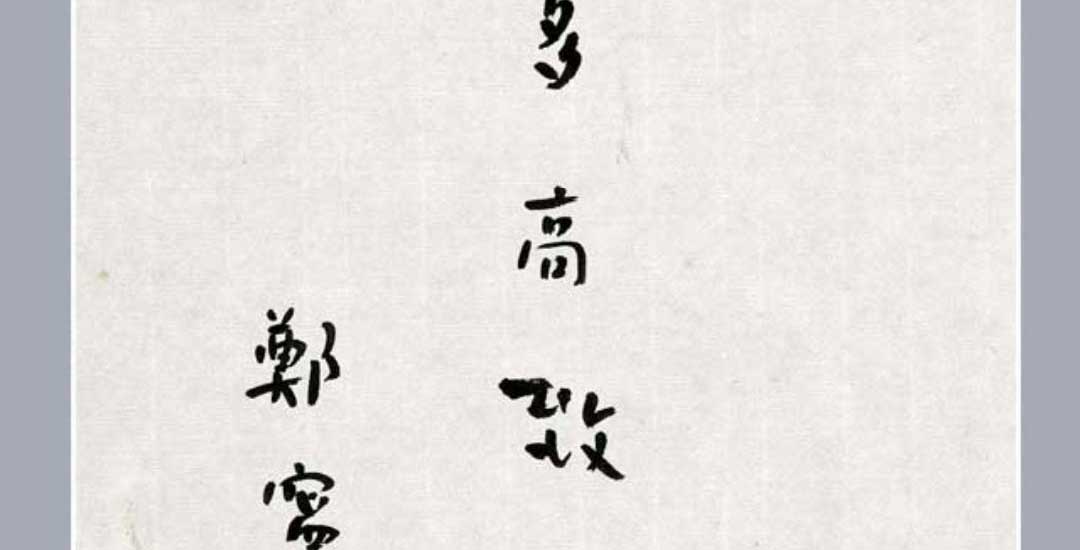 多高致
鄭寧